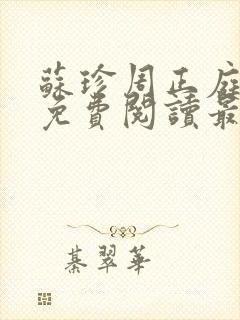 蘇珍周正庭
免費閱讀最
綦翠華